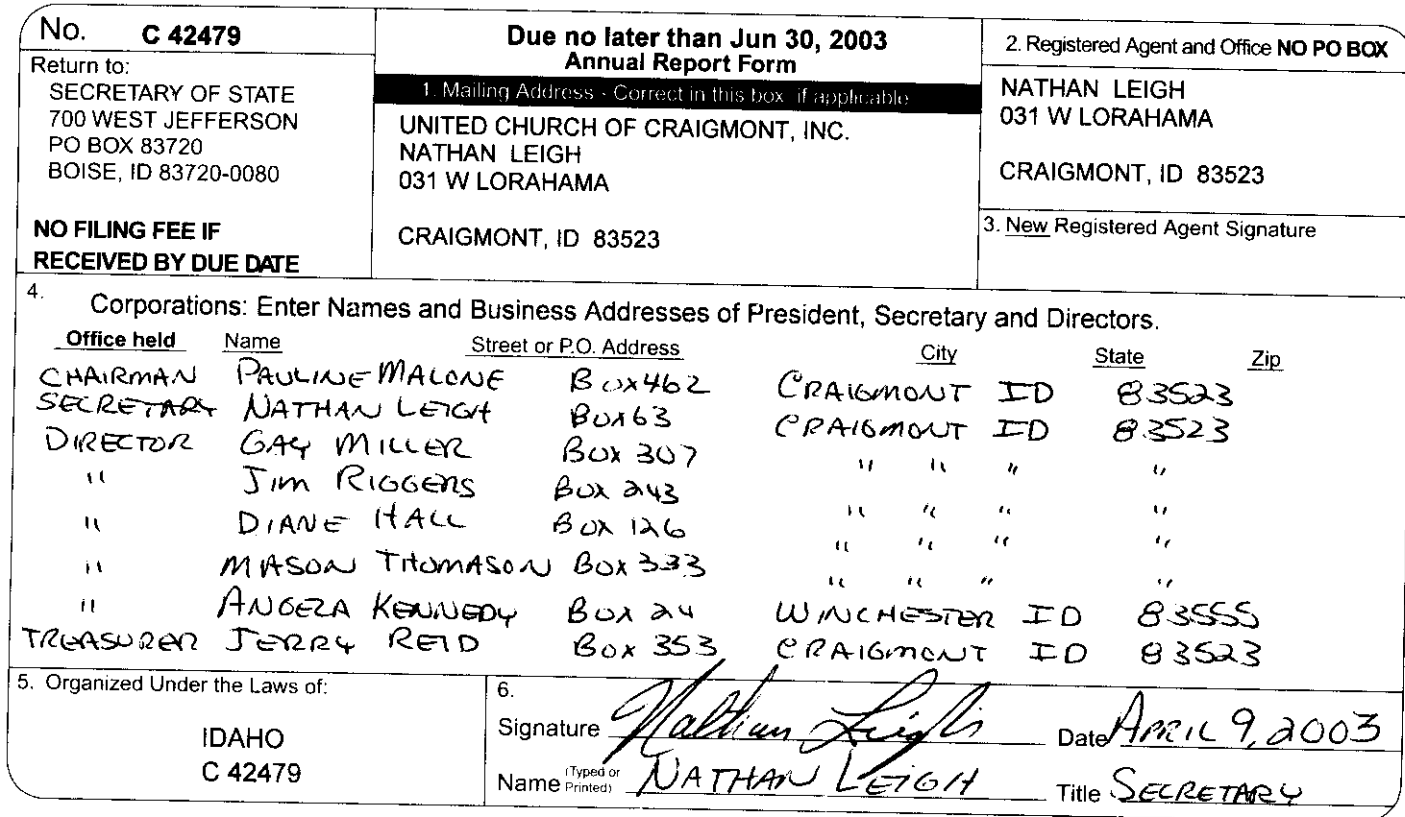 No. C 42479
Return to:
SECRETARY OF STATE
700 WEST JEFFERSON
PO BOX 83720
BOISE, ID 83720-0080
NO FILING FEE IF
RECEIVED BY DUE DATE
Due no later than Jun 30, 2003
Annual Report Form
1. Mailing Address - Correct in this box if applicable
UNITED CHURCH OF CRAIGMONT, INC.
NATHAN LEIGH
031 W LORAHAMA
CRAIGMONT, ID 83523
2. Registered Agent and Office NO PO BOX
NATHAN LEIGH
031 W LORAHAMA
CRAIGMONT, ID 83523
3. New Registered Agent Signature
4. Corporations: Enter Names and Business Addresses of President, Secretary and Directors.
Office held Name Street or P.O. Address City State Zip
CHAIRMAN PAULINE MALONE Box 462 CRAIGMONT ID 83523
SECRETARY NATHAN LEIGH Box 63 CRAIGMONT ID 83523
DIRECTOR GAY MILLER Box 307 " " " "
" JIM RIGGERS Box 243
" DIANE HALL Box 126 " " " "
" MASON THOMASON Box 333 " " " "
" ANGELA KENNEDY Box 24 WINCHESTER ID 83555
TREASURER JERRY REID Box 353 CRAIGMONT ID 83523
5. Organized Under the Laws of:
IDAHO
C 42479
6.
Signature Nathan Leigh Date APRIL 9, 2003
Name (Typed or Printed) NATHAN LEIGH Title SECRETARY